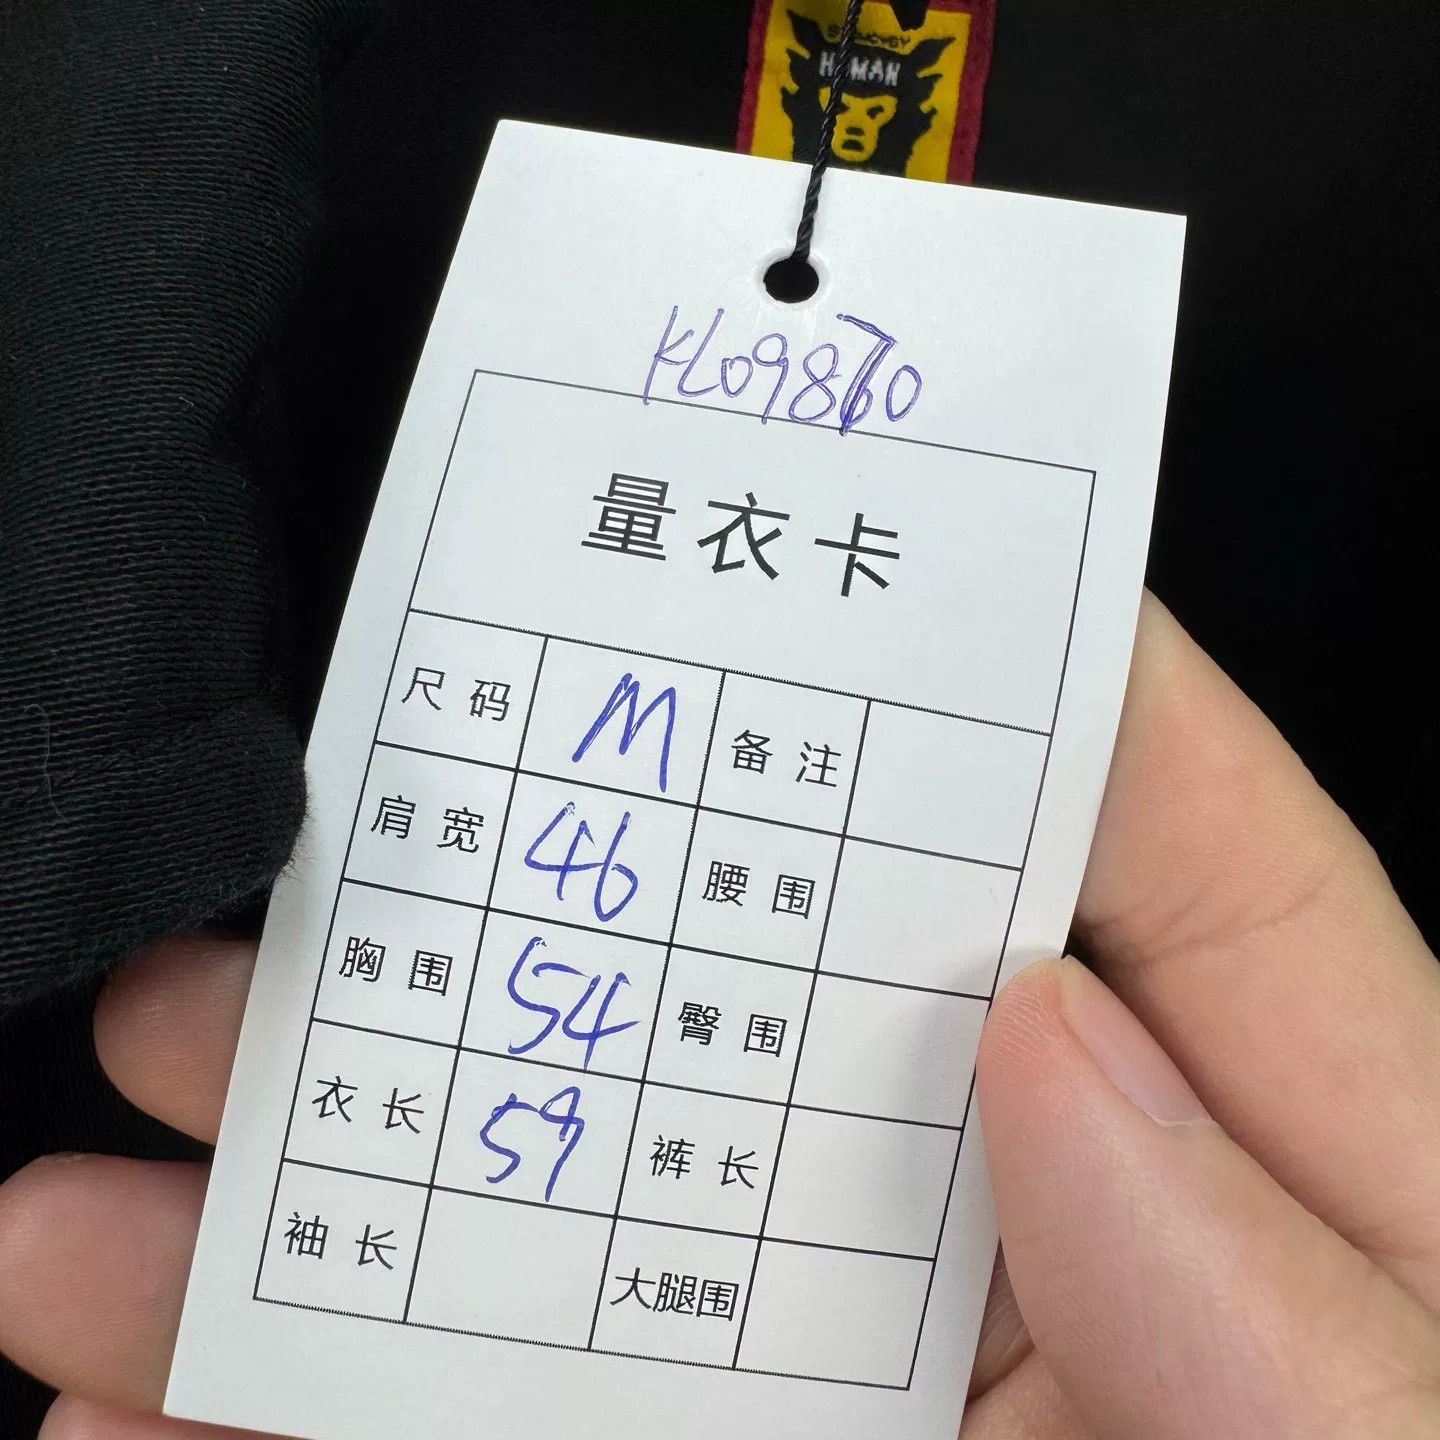 HUMAN
KL09870
量衣卡
尺码 M 备注
肩宽 46 腰围
胸围 54 臀围
衣长 59 裤长
袖长 大腿围